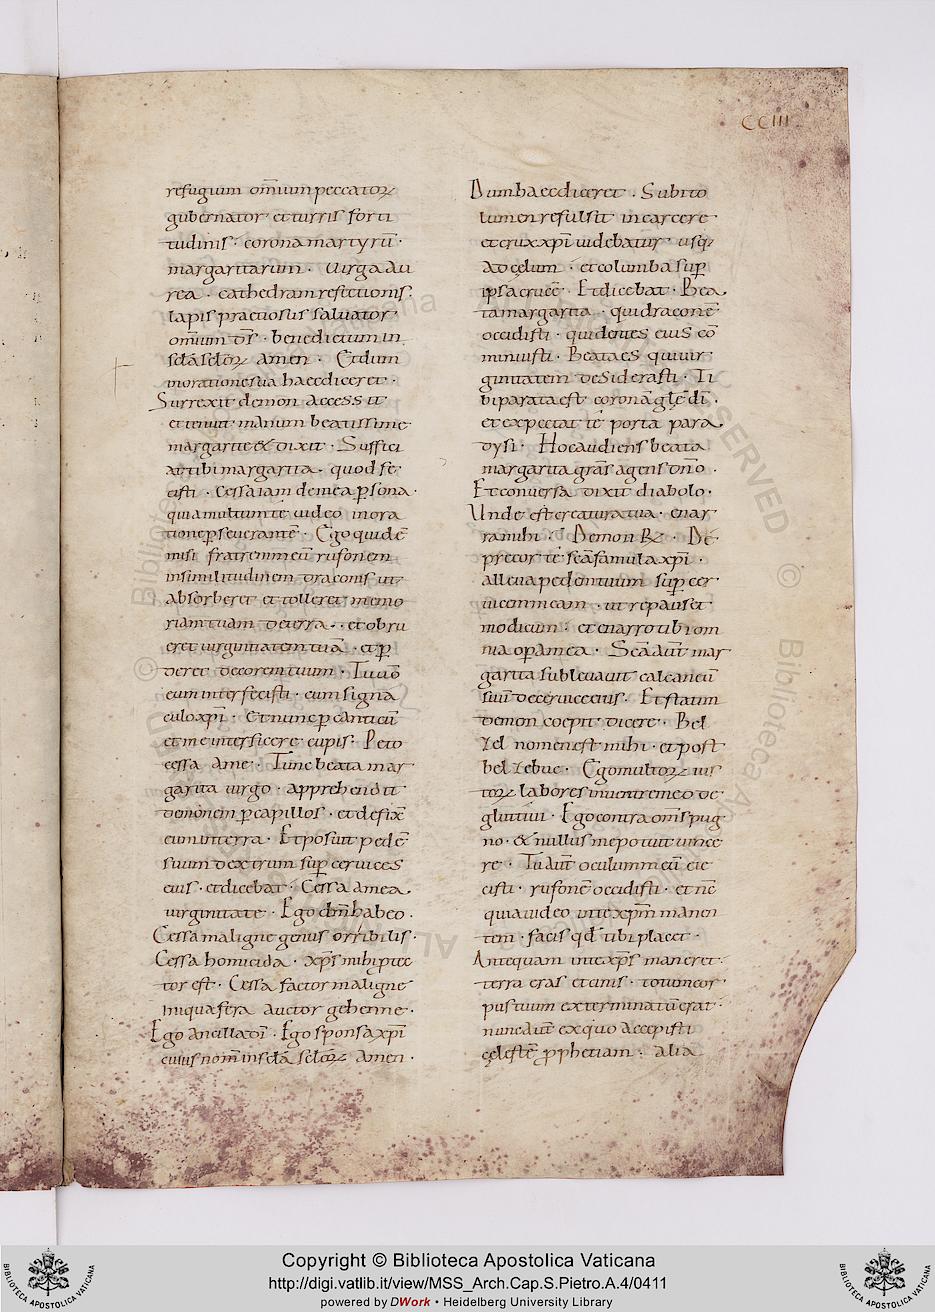 CCIII
refugium om̅ium peccatoꝝ
gubernator et turris forti
tudinis · corona martyrū ·
margaritarum · uirga au
rea · cathedra m refectionis ·
lapis praetiosus saluator
om̅ium d̅s · benedictum in
sc̅la sc̅loꝝ amen · Et dum
in oratione sua haec diceret ·
Surrexit demon accessit
et tenuit manum beatissime
margarite & dixit · Suffici
at tibi margarita · quod fe
cisti · Cessa iam de mea ꝑsona ·
quia multum te uideo in ora
tione ꝑseuerantē · Ego quidē
misi fratrem meū rufonem
in similitudinem draconis ut
absorberet et tolleret memo
riam tuam de terra · et obru
eret uirginitatem tuā · et ꝑ
deret decorem tuum · Tu uō
eum interfecisti · cum signa
culo xp̅i · Et nunc ꝑ canticū
et me interficere cupis · Peto
cessa a me · Tunc beata mar
garita uirgo · apprehendit
demonem ꝑ capillos · et defixit
eum in terra · Et posuit pedē
suum dextrum suꝑ ceruices
eius · et dicebat · Cessa a mea
uirginitate · Ego dn̅m habeo ·
Cessa maligne genus orribilis ·
Cessa homicida · xp̅s mihi ꝓtec
tor est · Cessa factor maligne
iniqua fera auctor gehenne ·
Ego ancilla · Ego sponsa xp̅i
cuius nom̅ in sc̅la sc̅loꝝ amen ·
Dum haec diceret · Subito
lumen refulsit in carcere
et crux xp̅i uidebatur usq;
ad cęlum · et columba suꝑ
ipsa crucē · Et dicebat · Bea
ta margarita · qui draconē
occidisti · qui dentes eius cō
minuisti · Beata es qui uir
ginitatem desiderasti · Ti
bi parata est corona glę dī ·
et expectat te porta para
dysi · Hoc audiens beata
margarita gra̅s agens dn̅o ·
Et conuersa dixit diabolo ·
Unde est creatura tua · enar
ra mihi · Demon R̸ · De
precor te sc̅a famula xp̅i ·
alleua pedem tuum suꝑ cer
uicem meam · ut repauset
modicum · et enarro tibi om
nia oꝑa mea · Sc̅a aut̅ mar
garita subleuauit calcaneū
suū de ceruice eius · Et statim
demon coepit dicere · Bel
zel nomen est mihi · et post
belzebuc · Ego multoꝝ ius
toꝝ labores inuentre meo de
gluttiui · Ego contra om̅s pug
no · & nullus me potuit uince
re · Tu aut̅ oculum meū eie
cisti · rufonē occidisti · et nc̅
quia uideo in te xp̅m manen
tem · facis qd̅ tibi placet ·
Antequam in te xp̅s maneret ·
terra eras et cinis · totum cor
pus tuum exterminatū erat ·
nunc aut̅ ex quo accepisti
cęlestē ꝓphetiam · alia
Copyright © Biblioteca Apostolica Vaticana
http://digi.vatlib.it/view/MSS_Arch.Cap.S.Pietro.A.4/0411
powered by DWork • Heidelberg University Library